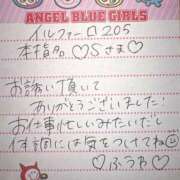 ANGEL BLUE GIRLS
イルフォーロ205
本指名♡Sさま♡
お誘い頂いて
ありがとうございました!
お仕事忙しいみたいだし
体調には気をつけてね
♡ふうか♡